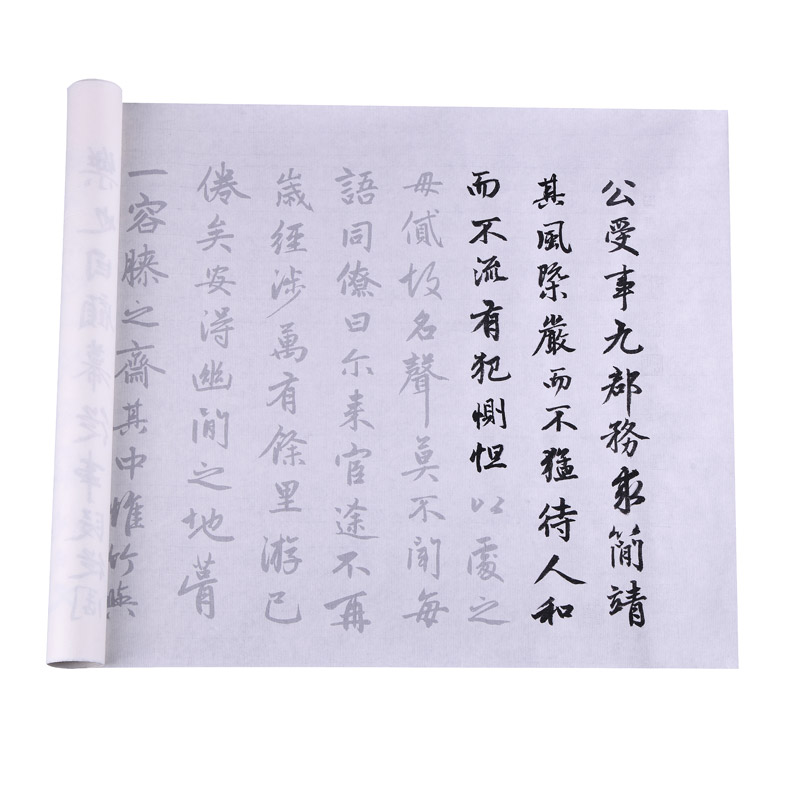 公受事九郡務求簡靖
其風槩嚴而不猛待人和
而不流有犯惻怛以處之
毋貳故名聲莫不聞每
語同僚曰尔来官途不再
歲經涉萬有餘里游已
倦矣安得幽閒之地葺
一容膝之齋其中惟竹與